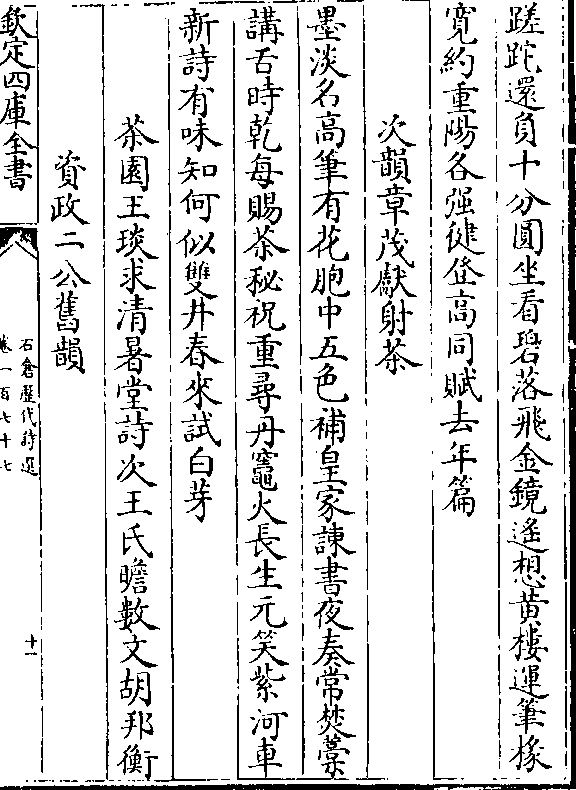 蹉跎還負十分圓坐看碧落飛金鏡遙想黄樓運筆椽
寛約重陽各强健登高同賦去年篇
次韻章茂獻射茶
墨淡名高筆有花胞中五色補皇家諌書夜奏常焚藁
講舌時乾每賜茶秘祝重尋丹竈火長生元笑紫河車
新詩有味知何似雙井春來試白芽
茶園王琰求清暑堂詩次王氏曕數文胡邦衡
資政二公舊韻
欽定四庫全書
石倉歴代詩選
卷一百七十七
十一